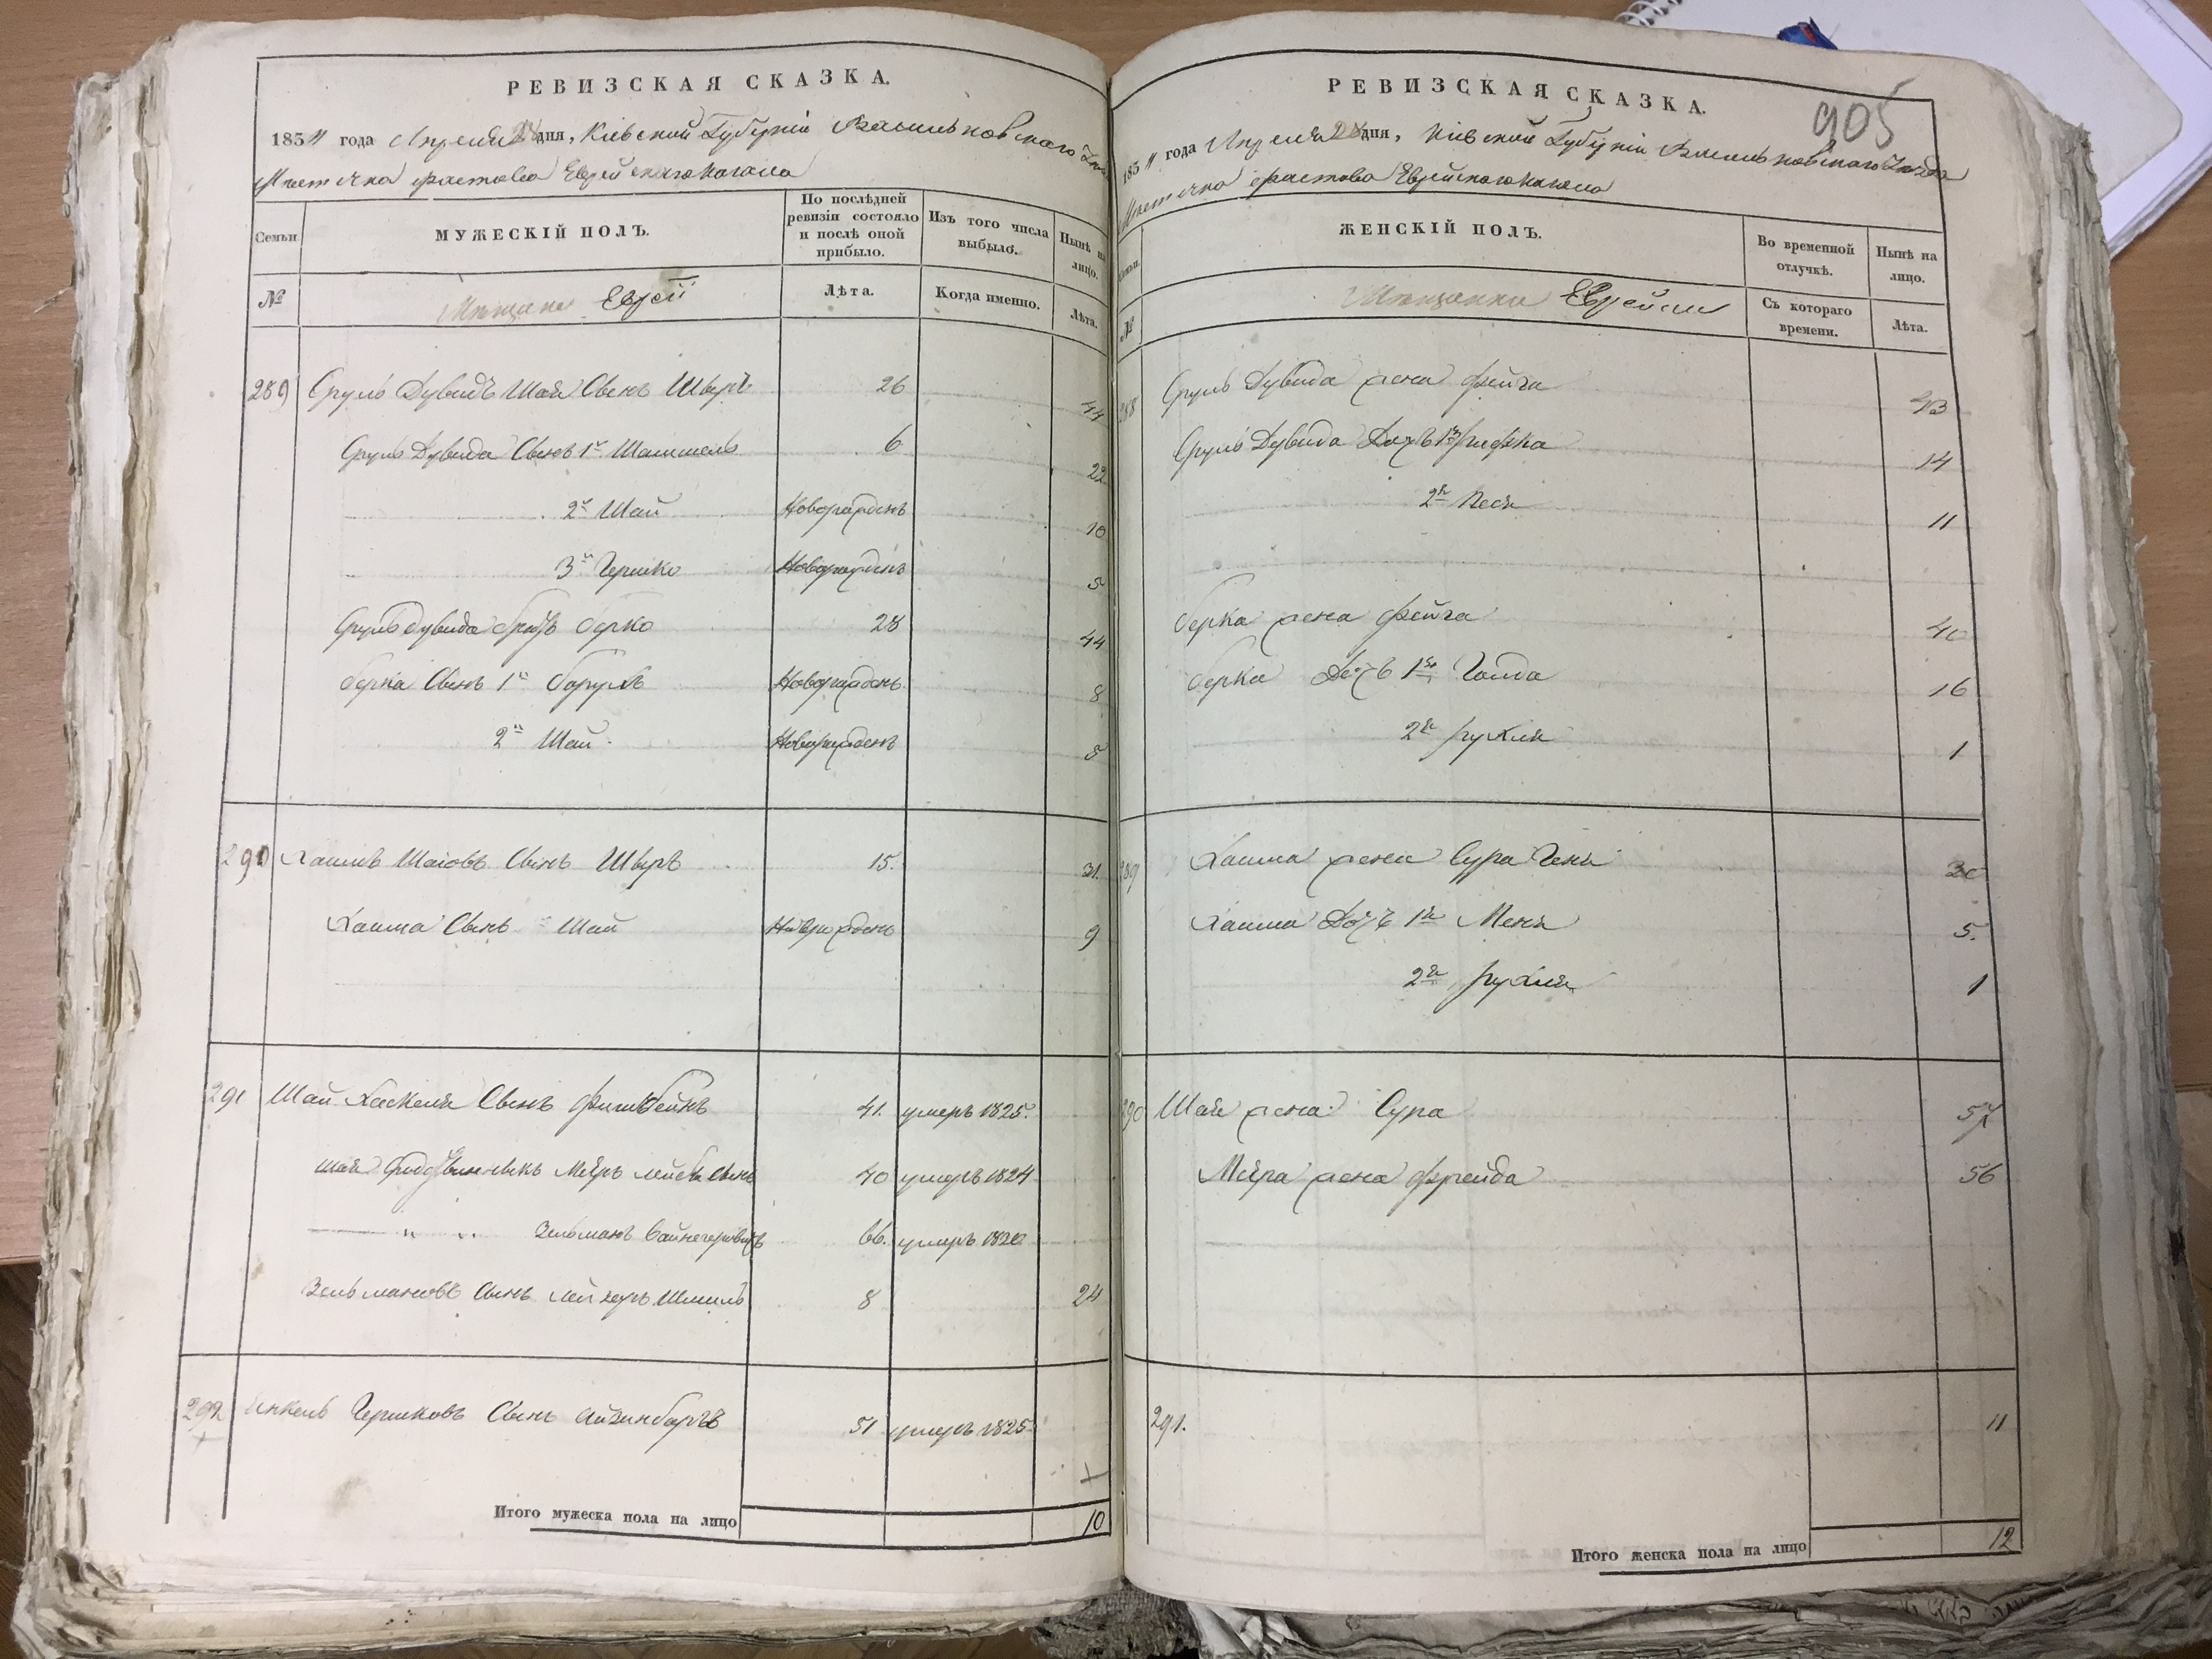 РЕВИЗСКАЯ СКАЗКА.
1834 года Апреля 24 дня, Кіевской Губерніи Васильковского Уезда
Местечка Фастова Еврейскаго Кагала
Семьи
МУЖЕСКІЙ ПОЛЪ.
По послѣдней ревизіи состояло и послѣ оной прибыло.
Изъ того числа выбыло.
Нынѣ на лицо.
№
Мещане Евреи
Лѣта.
Когда именно.
Лѣта.
289 Сруль Дувидъ Шаи Сынъ Шверъ 26 44
Сруль Дувида Сынъ 1й 6 22
2й Шай Новорожденъ 10
3й Гершко Новорожденъ 5
Сруль Дувида братъ Берко 28 44
Берка Сынъ 1й Борухъ Новорожденъ 8
2й Шай Новорожденъ 5
290 Хаимъ Шаіовъ Сынъ Шверъ 15. 31.
Хаима Сынъ Шай Новорожденъ 9
291 Шай Хаскеля Сынъ 41. умеръ 1825.
Шаи Мейръ Лейбы Сынъ 40 умеръ 1824
Зельманъ 66. умеръ 1820
Зельмановъ Сынъ Лейзеръ Шмиль 8 24
292 Янкель Гершковъ Сынъ Айзинбергъ 51 умеръ 1825
Итого мужеска пола на лицо 10
905
РЕВИЗСКАЯ СКАЗКА.
1834 года Апреля 24 дня, Кіевской Губерніи Васильковскаго Уезда
Местечка Фастова Еврейскаго Кагала
Семьи.
ЖЕНСКІЙ ПОЛЪ.
Во временной отлучкѣ.
Нынѣ на лицо.
№
Мещанки Еврейки
Съ котораго времени.
Лѣта.
288 Сруль Дувида жена Фейга 43
Сруль Дувида Дочь 1я Рифка 14
2я Песя 11
Берка жена Фейга 40
Берка Дочь 1я Голда 16
2я Рухля 1
289 Хаима жена Сура Геня 30
Хаима Дочь 1я Меня 5.
2я Рухля 1
290 Шаи жена Сура 57
Мейра жена Фрейда 56
291. 11
Итого женска пола на лицо 12